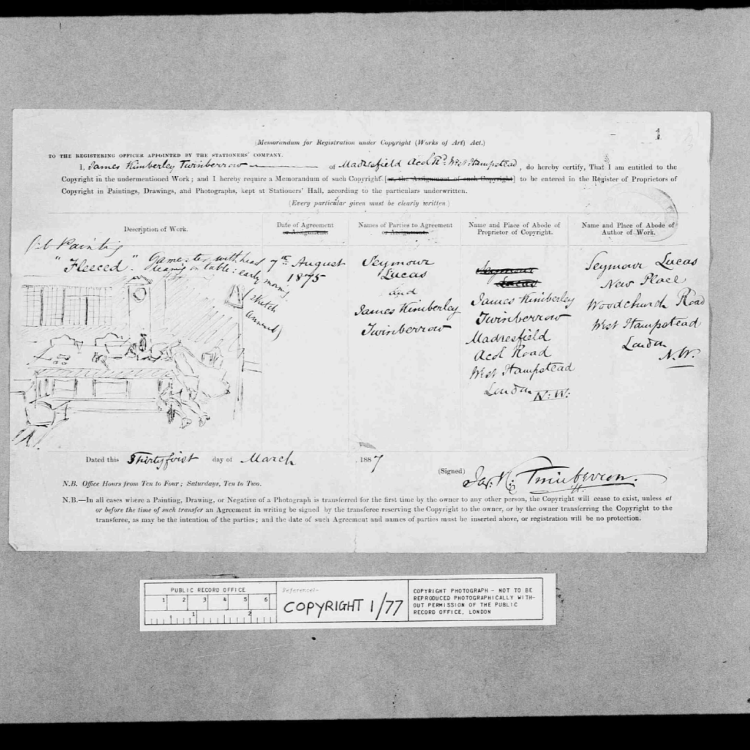 1
(Memorandum for Registration under Copyright (Works of Art) Act.)
TO THE REGISTERING OFFICER APPOINTED BY THE STATIONERS' COMPANY.
I, James Kimberley Twinberrow of Madresfield Acol Rd. West Hampstead, do hereby certify, That I am entitled to the
Copyright in the undermentioned Work; and I hereby require a Memorandum of such Copyright [or, the Assignment of such Copyright] to be entered in the Register of Proprietors of
Copyright in Paintings, Drawings, and Photographs, kept at Stationers' Hall, according to the particulars underwritten.
(Every particular given must be clearly written)
Description of Work.
Oil Painting
"Fleeced". Gamester with head
leaning on table: early morng.
(Sketch
annexed)
Date of Agreement
or Assignment.
7th August
1875
Names of Parties to Agreement
or Assignment.
Seymour
Lucas
and
James Kimberley
Twinberrow
Name and Place of Abode of
Proprietor of Copyright.
Seymour
Lucas
James Kimberley
Twinberrow
Madresfield
Acol Road
West Hampstead
London N.W.
Name and Place of Abode of
Author of Work.
Seymour Lucas
New Place
Woodchurch Road
West Hampstead
London
N.W.
Dated this Thirtyfirst day of March 1887
(Signed) Jas. K. Twinberrow.
N.B. Office Hours from Ten to Four; Saturdays, Ten to Two.
N.B.—In all cases where a Painting, Drawing, or Negative of a Photograph is transferred for the first time by the owner to any other person, the Copyright will cease to exist, unless at
or before the time of such transfer an Agreement in writing be signed by the transferee reserving the Copyright to the owner, or by the owner transferring the Copyright to the
transferee, as may be the intention of the parties; and the date of such Agreement and names of parties must be inserted above, or registration will be no protection.
PUBLIC RECORD OFFICE
1 2 3 4 5 6
1 2
Reference:-
COPYRIGHT 1/77
COPYRIGHT PHOTOGRAPH - NOT TO BE
REPRODUCED PHOTOGRAPHICALLY WITH-
OUT PERMISSION OF THE PUBLIC
RECORD OFFICE, LONDON